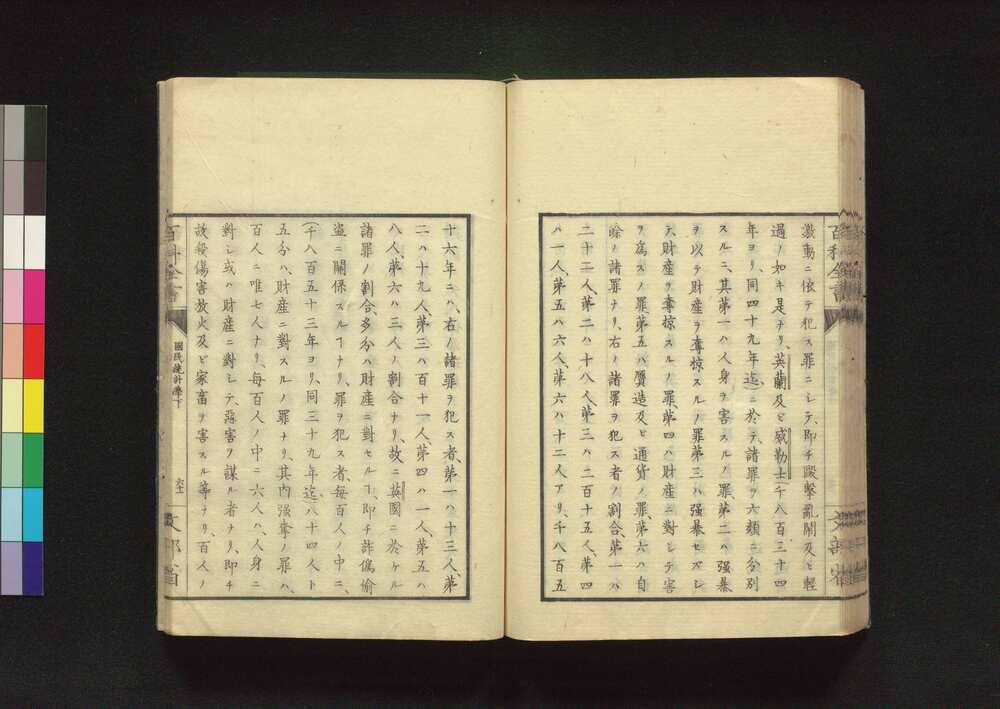 激動ニ依テ犯ス罪ニシテ、即チ毆擊亂鬧及ヒ輕
過ノ如キ是ナリ、英蘭及ヒ威勒士(千八百三十四
年ヨリ、同四十九年迄)ニ於テ、諸罪ヲ六類ニ分別
スルニ、其第一ハ人身ヲ害スルノ罪、第二ハ强暴
ヲ以テ財産ヲ奪掠スルノ罪第三ハ强暴セズシ
テ、財産ヲ奪掠スルノ罪、第四ハ財産ニ對シテ害
ヲ爲スノ罪、第五ハ贋造及ヒ通貨ノ罪、第六ハ自
餘ノ諸罪ナリ、右ノ諸罪ヲ犯ス者ノ割合、第一ハ
二十二人、第二ハ十八人、第三ハ二百十五人、第四
ハ一人、第五ハ六人、第六ハ十二人アリ、千八百五
十六年ニハ、右ノ諸罪ヲ犯ス者、第一ハ十三人、第
二ハ十九人、第三ハ百十一人、第四ハ一人、第五ハ
八人、第六ハ三人ノ割合ナリ、故ニ英國ニ於ケル
諸罪ノ割合、多分ハ財産ニ對セルヿ、即チ詐偽偷
盜ニ關係スルヿナリ、罪ヲ犯ス者、每百人ノ中ニ、
(千八百五十三年ヨリ、同三十九年迄)八十四人ト
五分ハ、財産ニ對スルノ罪ナリ、其內强奪ノ罪ハ、
百人ニ唯七人ナリ、每百人ノ中ニ六人ハ、人身ニ
對シ或ハ財産ニ對シテ、惡害ヲ謀ル者ナリ、即チ
故殺傷害放火及ビ家畜ヲ害スル等ナリ、百人ノ
百科全書
國民統計學下
六十一
文部省
百科全書
文部省